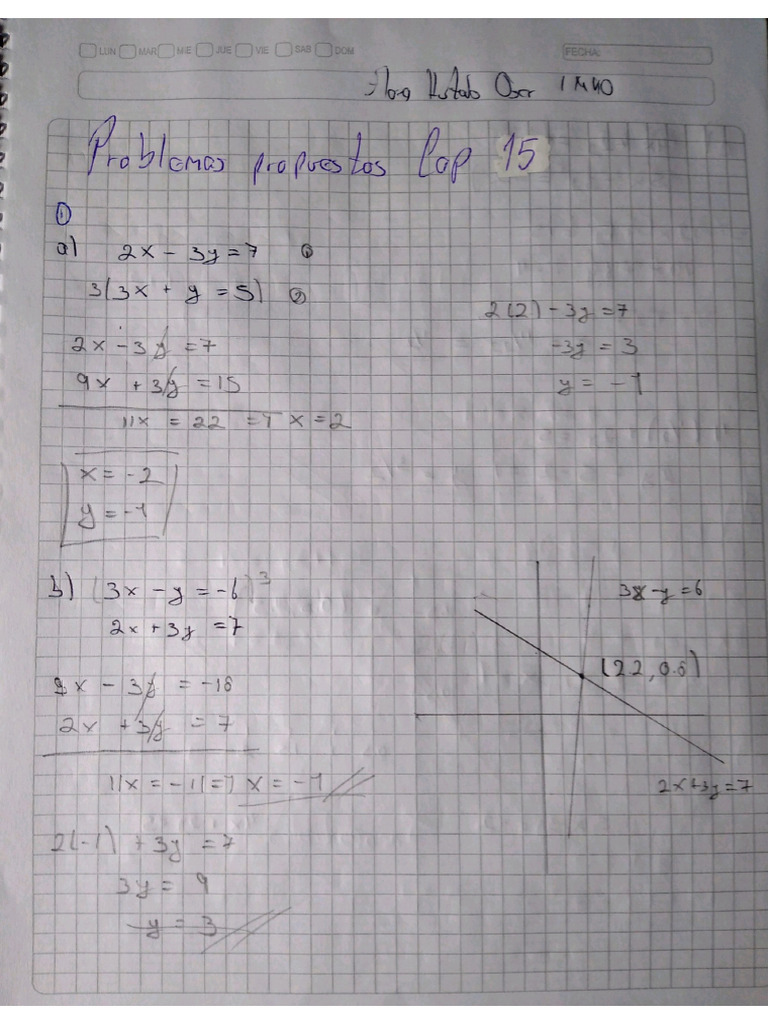 LUN MAR MIE JUE VIE SAB DOM FECHA:
1M40
Problemas propuestos Cap 15
①
a) 2x - 3y = 7 ①
3(3x + y = 5) ②
2x - 3y = 7
9x + 3y = 15
11x = 22 => x = 2
2(2) - 3y = 7
-3y = 3
y = -1
x = -2
y = -1
b) (3x - y = -6)3
2x + 3y = 7
9x - 3y = -18
2x + 3y = 7
11x = -11 => x = -1
2(-1) + 3y = 7
3y = 9
y = 3
3x - y = 6
(2.2, 0.6)
2x + 3y = 7